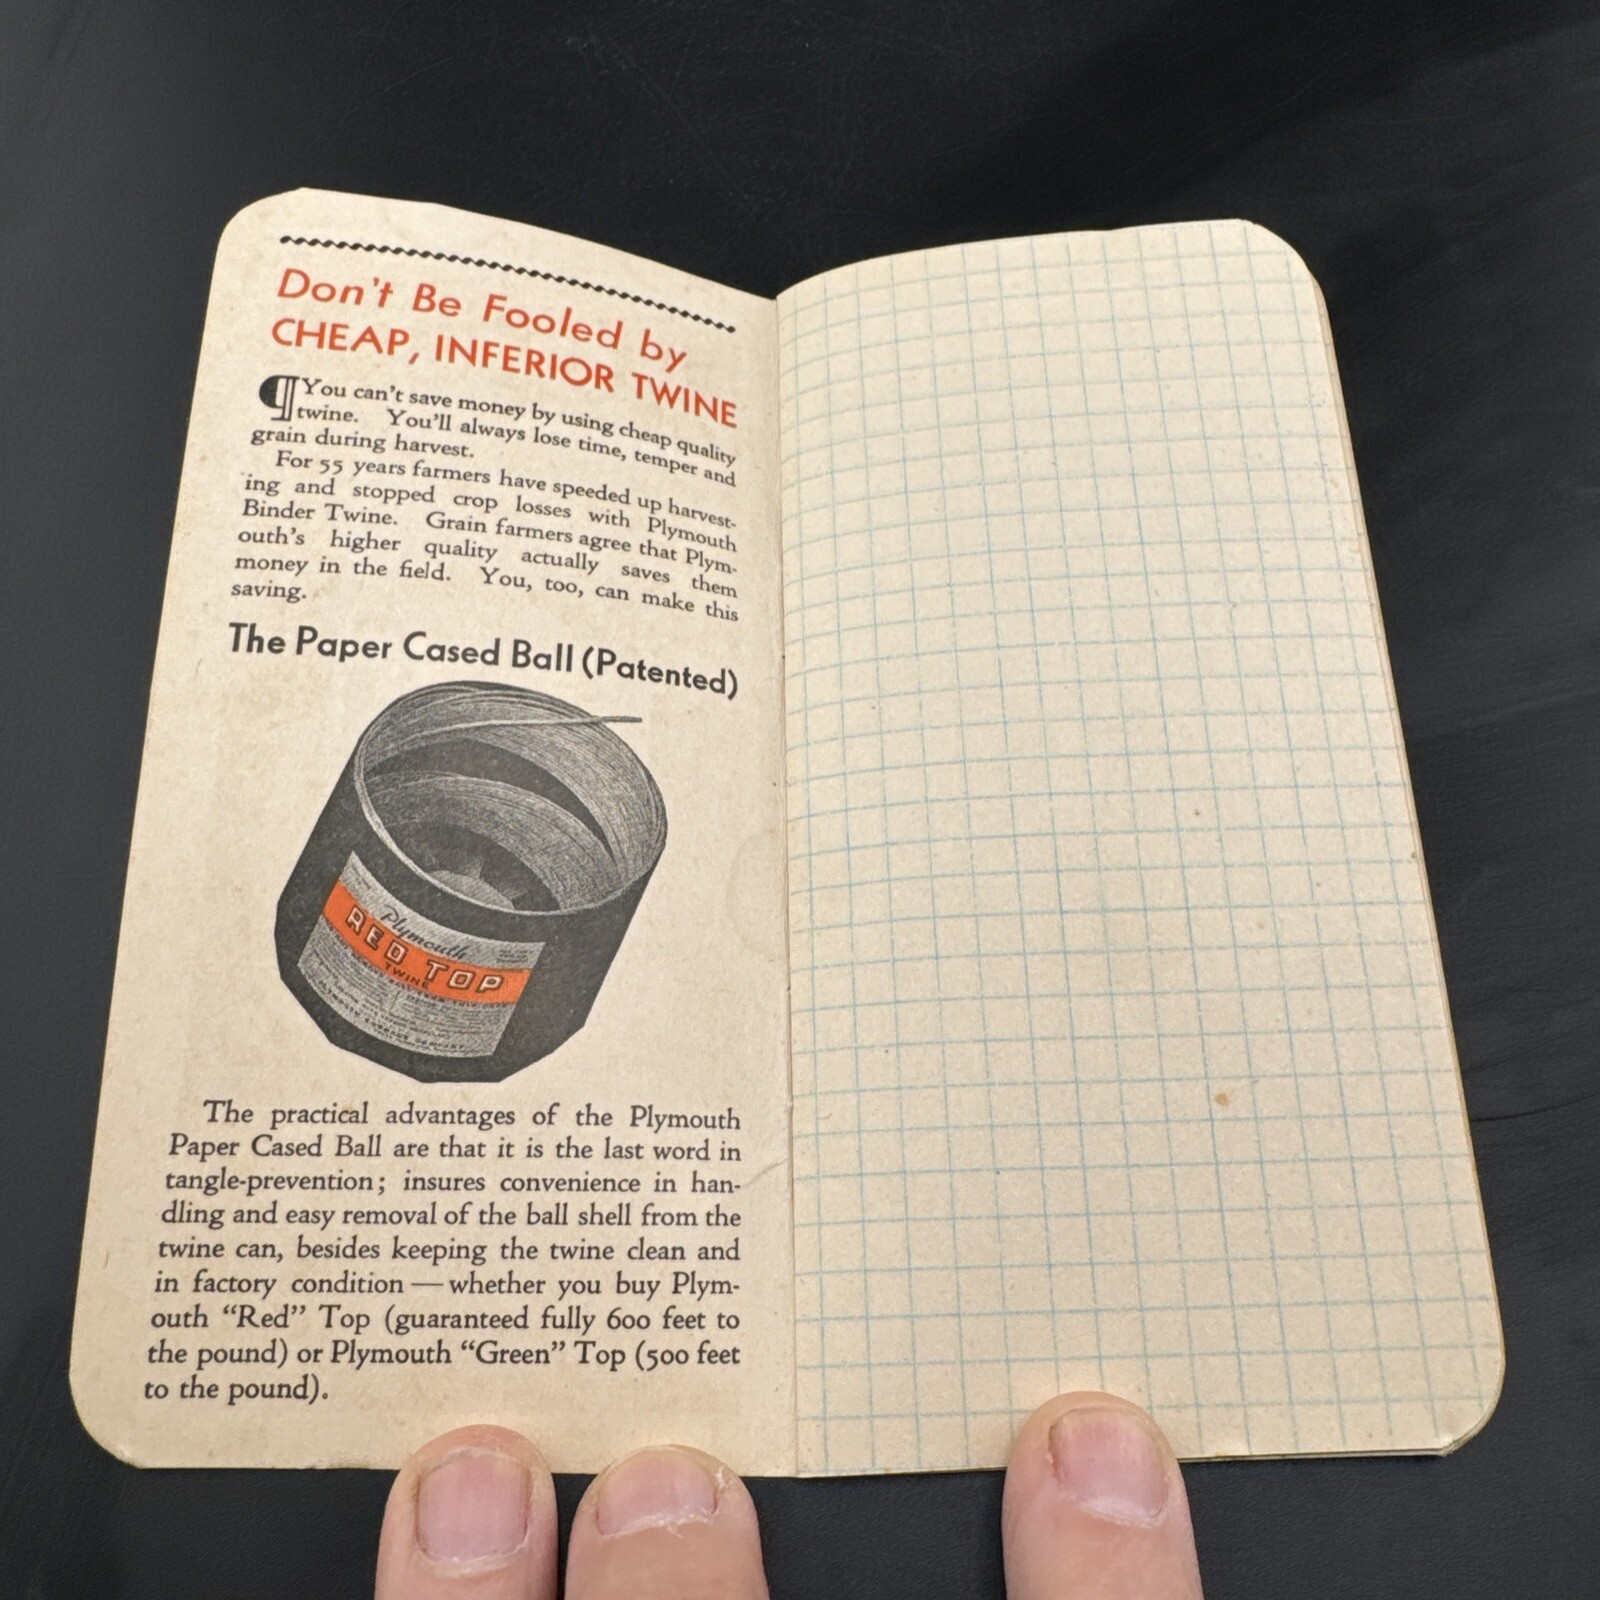 Don't Be Fooled by
CHEAP, INFERIOR TWINE
¶You can't save money by using cheap quality
twine. You'll always lose time, temper and
grain during harvest.
For 55 years farmers have speeded up harvest-
ing and stopped crop losses with Plymouth
Binder Twine. Grain farmers agree that Plym-
outh's higher quality actually saves them
money in the field. You, too, can make this
saving.
The Paper Cased Ball (Patented)
Plymouth
RED TOP
TWINE
PLYMOUTH CORDAGE COMPANY
The practical advantages of the Plymouth
Paper Cased Ball are that it is the last word in
tangle-prevention; insures convenience in han-
dling and easy removal of the ball shell from the
twine can, besides keeping the twine clean and
in factory condition — whether you buy Plym-
outh “Red” Top (guaranteed fully 600 feet to
the pound) or Plymouth “Green” Top (500 feet
to the pound).